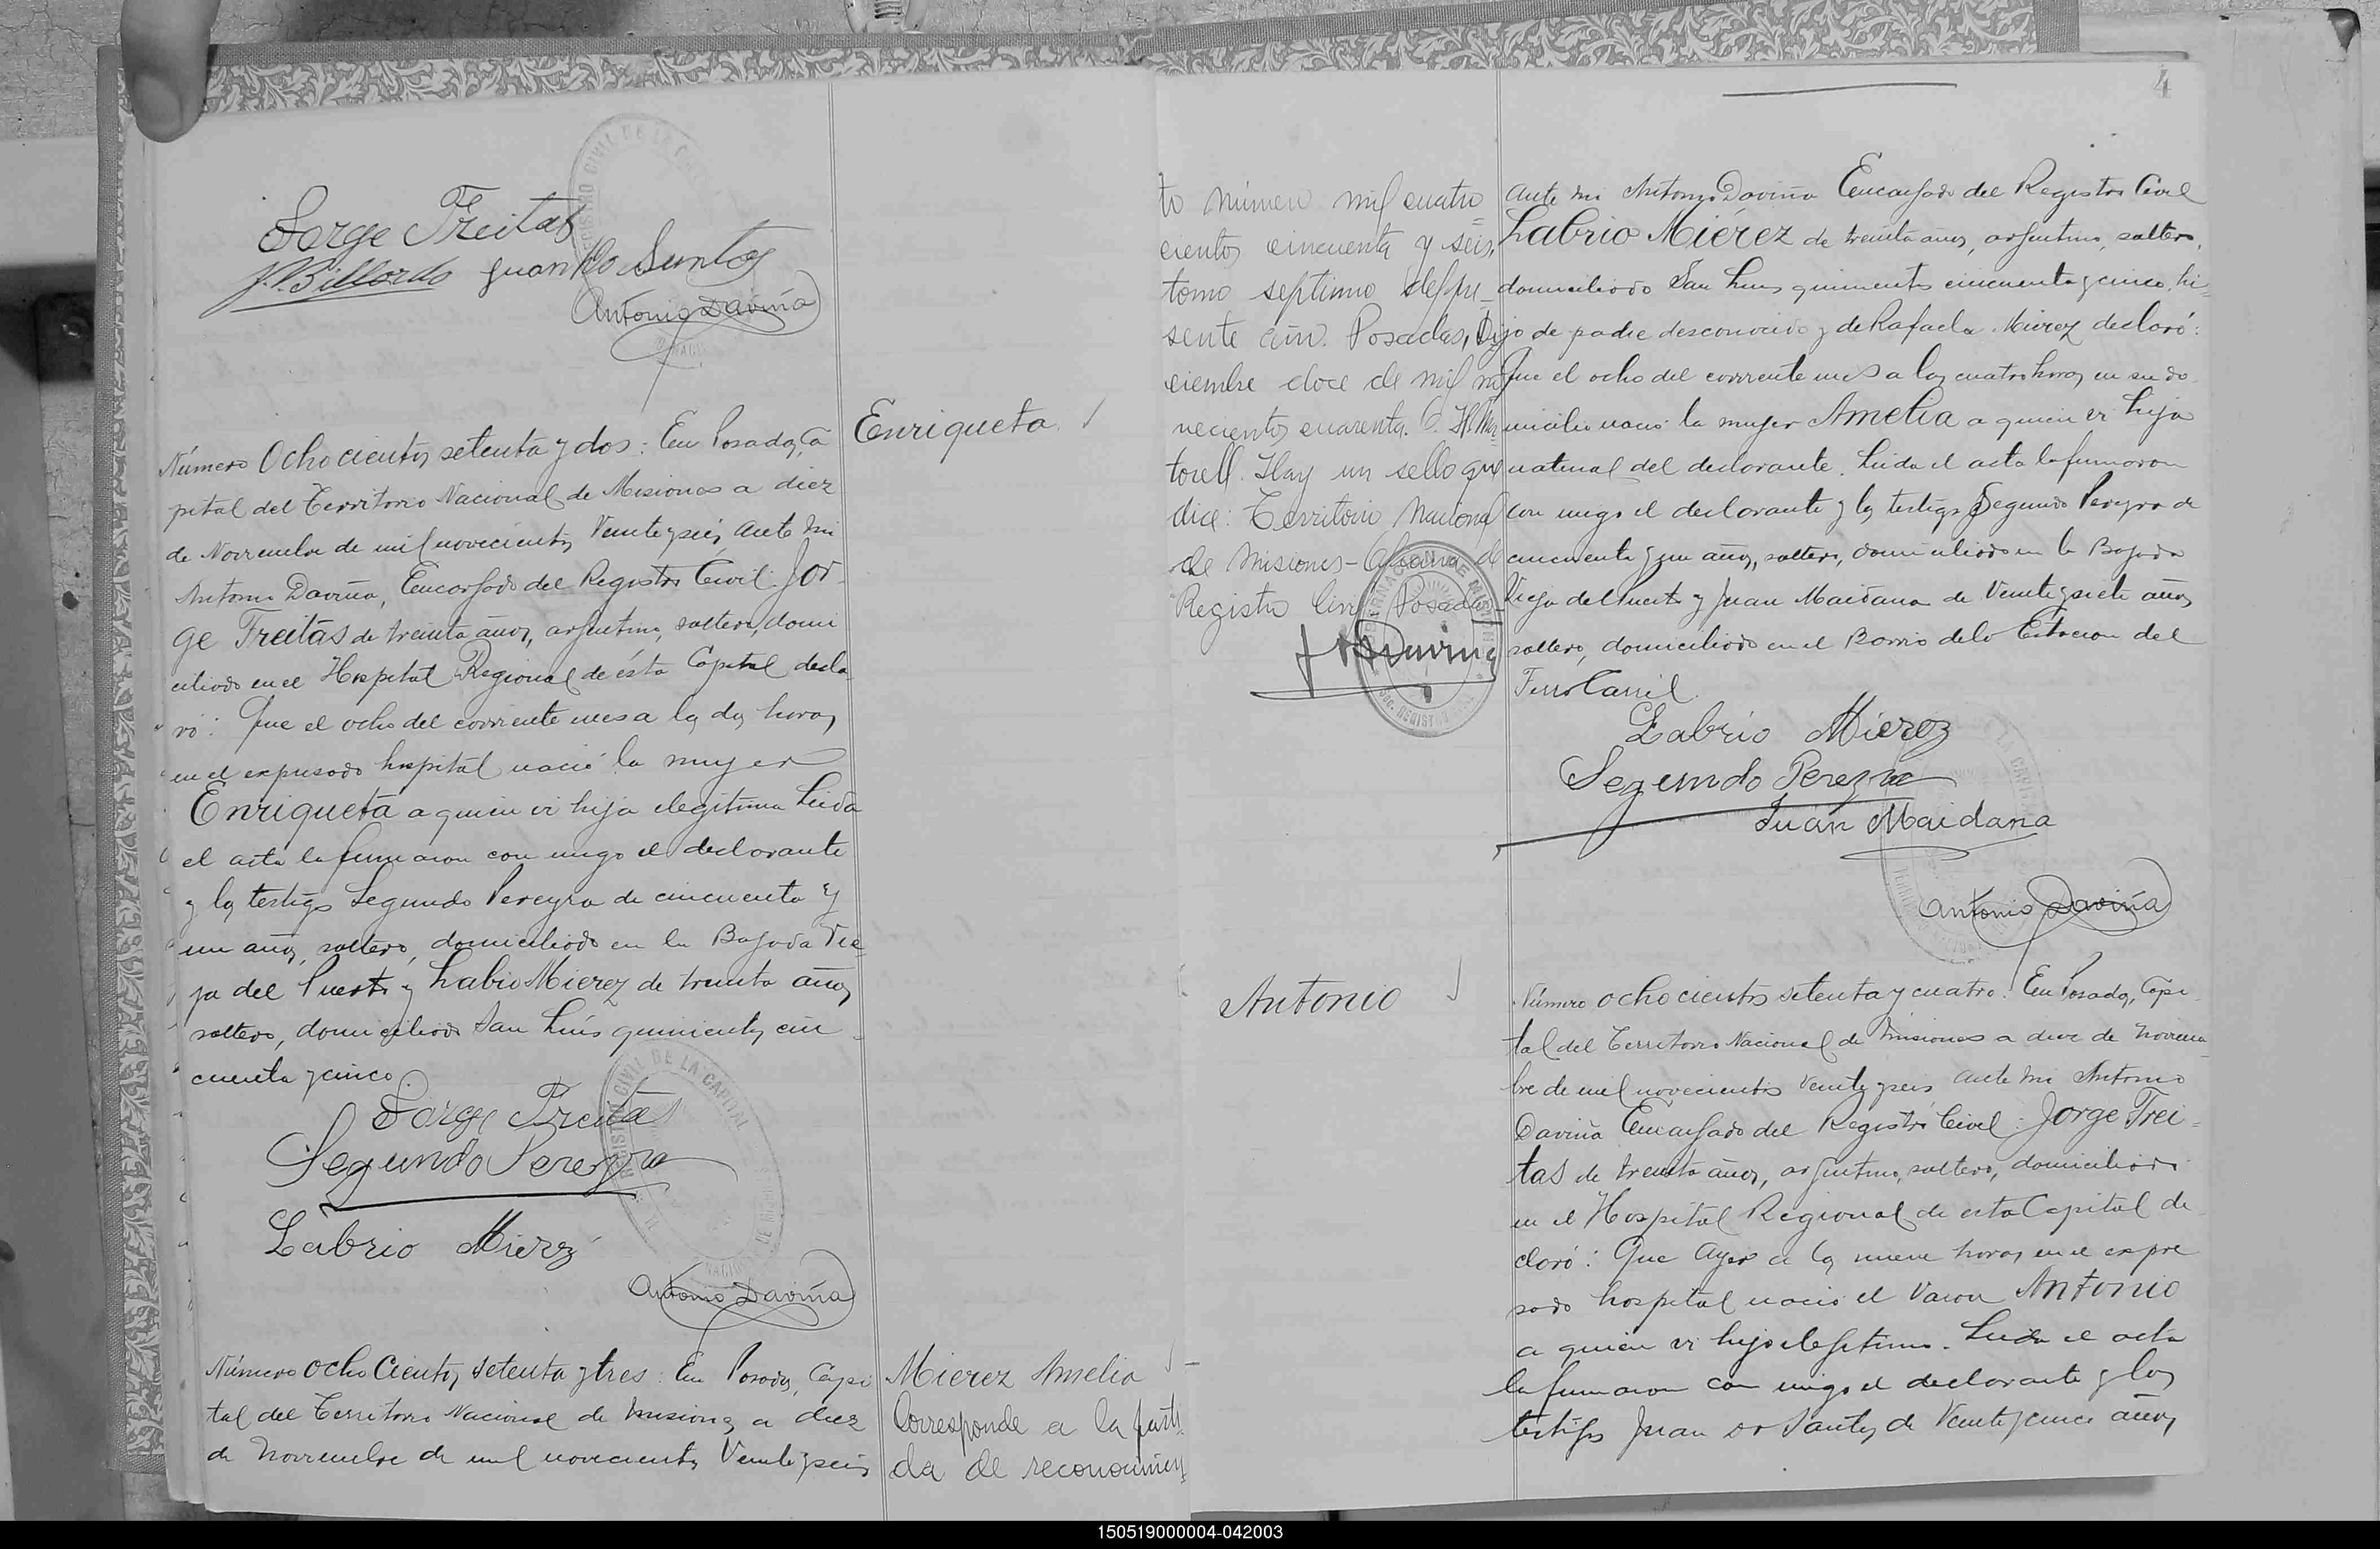 Jorge Freitas
J. P. Billordo Juan Do Santos
Antonio Daviña
Enriqueta
Número Ochocientos setenta y dos: En Posadas, Ca
pital del Territorio Nacional de Misiones a diez
de Noviembre de mil novecientos Veinte y seis, ante mi
Antonio Daviña, Encargado del Registro Civil: Jor
ge Freitas de treinta años, argentino, soltero, domi
ciliado en el Hospital Regional de ésta Capital decla
ró: Que el ocho del corriente mes a las dos horas,
en el expresado hospital nació la mujer
Enriqueta a quien vi hija ilegitima Leida
el acta la firmaron con migo el declarante
y los testigos Segundo Pereyra de cincuenta y
un años, soltero, domiciliado en la Bajada Vie
ja del Puerto y Labrio Mierez de treinta años,
soltero, domiciliado San Luis quinientos cin
cuenta y cinco.
Jorge Freitas
Segundo Pereyra
Labrio Mierez
Antonio Daviña
Número ocho Cientos setenta y tres: En Posadas, Capi
tal del Territorio Nacional de Misiones a diez
de Noviembre de mil novecientos Veinte y seis
Mierez Amelia
Corresponde a la parti
da de reconocimien
4
to número mil cuatro
cientos cincuenta y seis,
tomo septimo del pre
sente año. Posadas, Di
ciembre doce de mil no
vecientos cuarenta.
torell. Hay un sello que
dice: Territorio Nacional
de Misiones - Oficina de
Registro Civil Posadas
Daviña
ante mi Antonio Daviña Encargado del Registro Civil
Labrio Miérez de treinta años, argentino, soltero,
domiciliado San Luis quinientos cincuenta y cinco, hi
jo de padre desconocido y de Rafaela Mierez declaró:
Que el ocho del corriente mes a las cuatro horas en su do
micilio nació la mujer Amelia a quien vi hija
natural del declarante. Leida el acta la firmaron
con migo el declarante y los testigos Segundo Pereyra de
cincuenta y un años, soltero, domiciliado en la Bajada
Vieja del Puerto y Juan Maidana de Veinte y siete años
soltero, domiciliado en el Barrio de la Estacion del
Ferro Carril.
Labrio Mierez
Segundo Pereyra
Juan Maidana
Antonio Daviña
Antonio
Número ochocientos setenta y cuatro: En Posadas, Capi
tal del Territorio Nacional de Misiones a diez de Noviem
bre de mil novecientos Veinte y seis ante mi Antonio
Daviña Encargado del Registro Civil: Jorge Frei
tas de treinta años, argentino, soltero, domiciliado
en el Hospital Regional de esta Capital de
claró: Que ayer a las nueve horas, en el expre
sado hospital nació el Varon Antonio
a quien vi hijo ilegitimo. Leida el acta
la firmaron con migo el declarante y los
testigos Juan do Santos, de Veinte y cinco años,
150519000004-042003